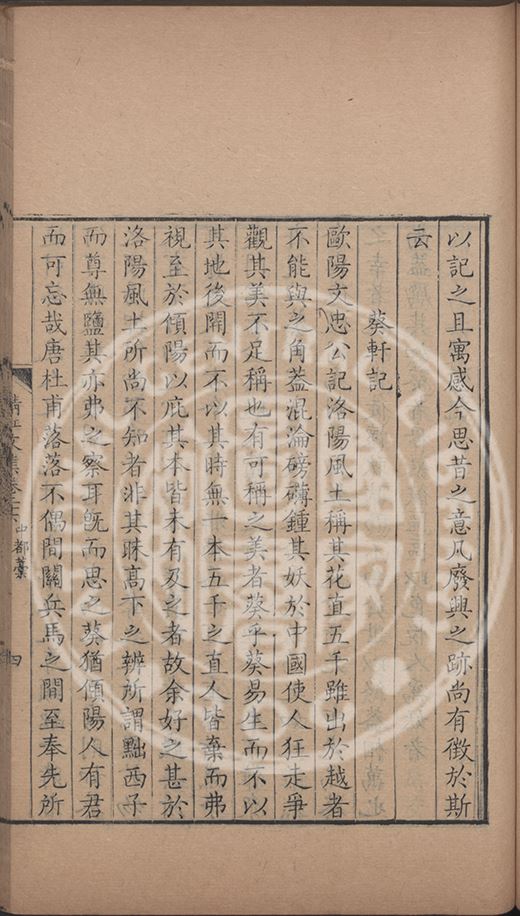 以記之且寓感今思昔之意凡廢興之跡尚有徵於斯
云
葵軒記
歐陽文忠公記洛陽風土稱其花直五千雖出於越者
不能與之角葢混淪磅礴鍾其妖於中國使人狂走爭
觀其美不足稱也有可稱之美者葵乎葵易生而不以
其地後開而不以其時無一本五千之直人皆棄而弗
視至於傾陽以庇其本皆未有及之者故余好之甚於
洛陽風土所尚不知者非其昧髙下之辨所謂黜西子
而尊無鹽其亦弗之察耳旣而思之葵猶傾陽人有君
而可忘哉唐杜甫落落不偶間關兵馬之間至奉先所
清江文集卷十六 山都藁 四